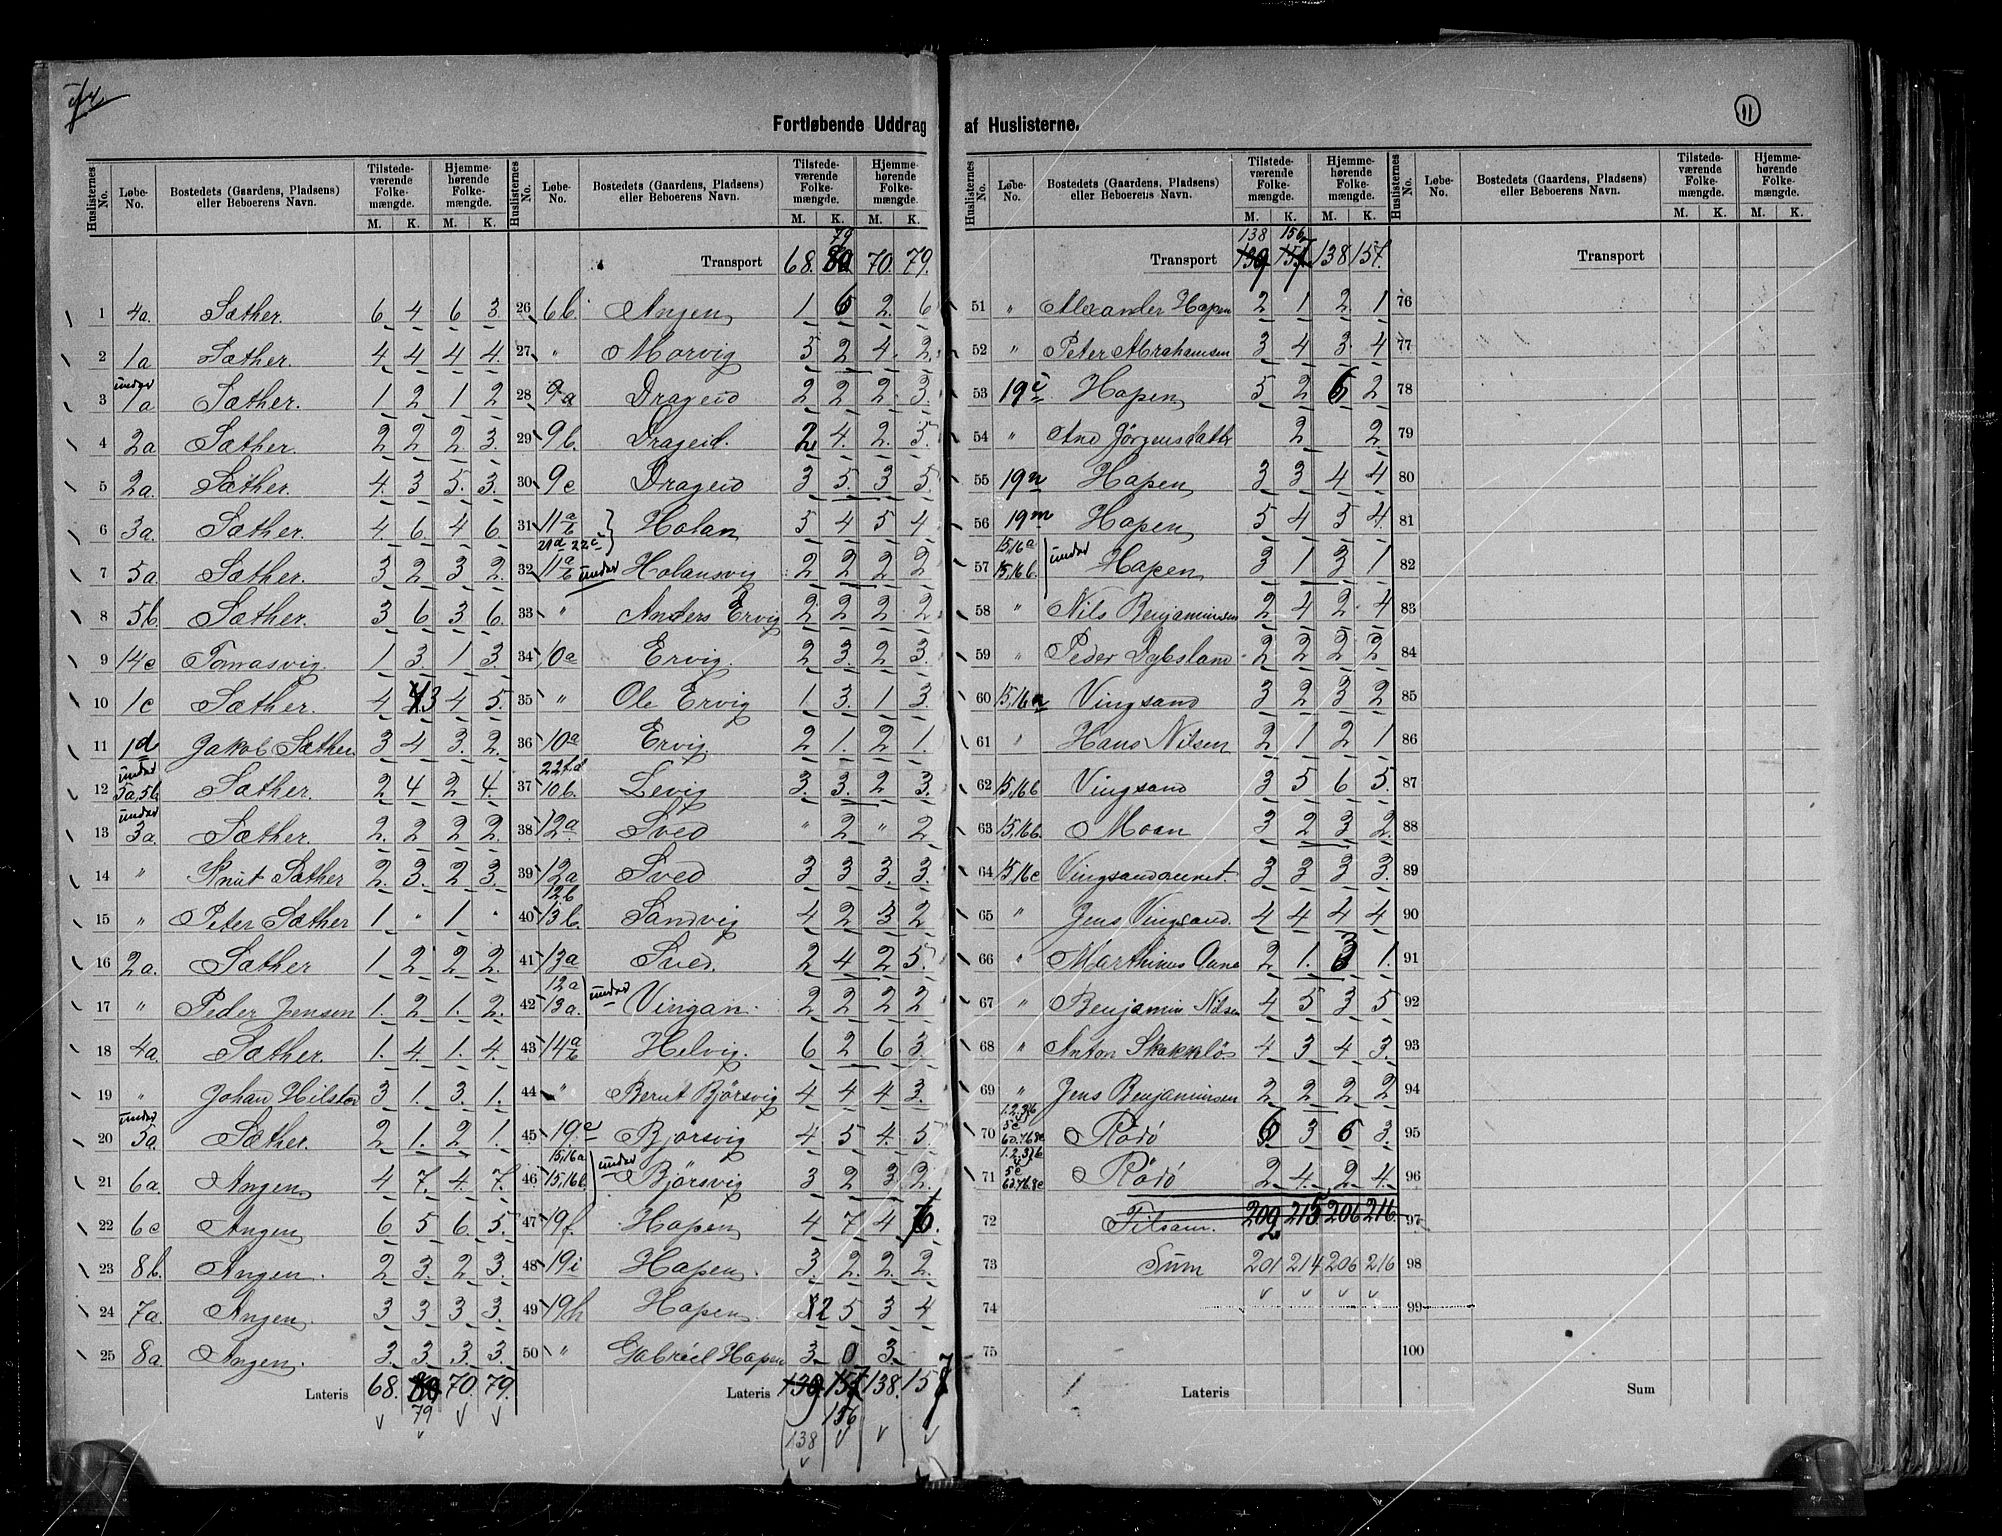 11
Fortløbende Uddrag af Huslisterne.
Huslisternes No. | Løbe-No. | Bostedets (Gaardens, Pladsens) eller Beboerens Navn. | Tilstedeværende Folkemængde. M. K. | Hjemmehørende Folkemængde. M. K.
1 4a. Sæther. 6 4 6 3
2 1a Sæther. 4 4 4 4.
3 under 1a Sæther. 1 2 1 2
4 2a Sæther. 2 2 2. 3.
5 2a. Sæther. 4. 3 5. 3.
6 3a. Sæther. 4 6 4 6.
7 5a. Sæther. 3 2 3 2.
8 5b. Sæther. 3 6 3 6.
9 14c Tomasvig. 1 3. 1 3.
10 1c Sæther. 4 3 4 5.
11 1d Jakob Sæther. 3 4 3. 2.
12 under 5a,5b Sæther. 2 4 2 4.
13 under 3a. Sæther. 2. 2 2 2.
14 " Knut Sæther 2. 3. 2 3.
15 " Peter Sæther 1 " 1 "
16 2a. Sæther 1 2 2 2.
17 " Peder Jensen 1. 2 1. 2.
18 4a. Sæther. 1. 4. 1. 4.
19 " Johan Hilstad 3 1. 3. 1.
20 under 5a. Sæther. 2 1. 2 1.
21 6a. Angen 4 7. 4. 7.
22 6c Angen 6 5 6. 5.
23 8b. Angen. 2 3. 2 3.
24 7a. Angen. 3 3 3 3.
25 8a. Angen. 3. 3. 3. 3.
Lateris 68. 80 70. 79.
79
Transport 68. 80 70. 79.
79
26 6b. Angen 1 6 2. 6
27 " Morvig 5 2 4. 2.
28 9a Drageid 2 2 2. 3.
29 9b. Drageid. 2 4. 2. 5.
30 9c Drageid 3 5. 3 5.
31 11a b 21d 22c Holan 5 4 5 4
32 11a b under Holansvig 2 2 2 2
33 " Anders Ervig 2 2 2 2
34 10a Ervig. 2 3. 2 3.
35 " Ole Ervig 1 3. 1 3.
36 10a Ervig. 2 1. 2 1.
37 10b. Levig 3. 3. 2 3.
38 12a Sved " 2 " 2
39 12a Sved 3 3 3. 3.
40 12b 13b. Sandvig 4 2 3 2
41 13a Sved. 2 4 2 5.
42 12a 13a. under Vingan. 2 2 2 2
43 14a b Helvig. 6 2 6 3.
44 " Bernt Bjørsvig 4 4 4 3.
45 19e Bjørsvig 4 5 4. 5
46 15,16a 15,16b. under Bjørsvig 3 2 3 2.
47 19f. Hopen 4 7 4 6.
48 19i Hopen. 3. 2. 2. 2.
49 19h Hopen. 2 5 3 4
50 " Gabriel Hopen 3. 0 3.
Lateris 139 157 138. 157
138 156
Transport 139 157 138 157.
138 156
51 " Alexander Hopen 2 1 2 1
52 " Peter Abrahamsen 3 4 3. 4
53 19c Hopen 5 2 6 2
54 " Ane Jörgensdatter 2 2
55 19n Hopen 3 3 4 4
56 19m Hopen 5 4 5 4.
57 15,16a 15,16b. under Hopen 3 1 3 1
58 " Nils Benjaminsen 2 4 2. 4
59 " Peder Dybsland 2 2 2 2
60 15,16a Vingsand 3 2 3 2
61 " Hans Nilsen 2 1 2 1
62 15,16b Vingsand 3 5 6 5.
63 15,16b. Moan 3 2 3 2.
64 15,16c Vingsandaunet. 3 3 3 3.
65 " Jens Vingsand. 4 4 4 4
66 " Marthinus Aune 2 1. 3 1.
67 " Benjamin Nilsen 4 5 3 5
68 " Anton Skakkløs 4 3 4 3.
69 " Jens Benjaminsen 2 2 2 2
70 1.2.3b 5c Rödö 6 3 6 3.
71 1.2.3b 5c Rödö 2 4. 2 4.
72 Tilsam. 209 215 206 216
73 Sum 201 214 206 216
74
75
Lateris
Transport
76
77
78
79
80
81
82
83
84
85
86
87
88
89
90
91
92
93
94
95
96
97
98
99
100
Sum